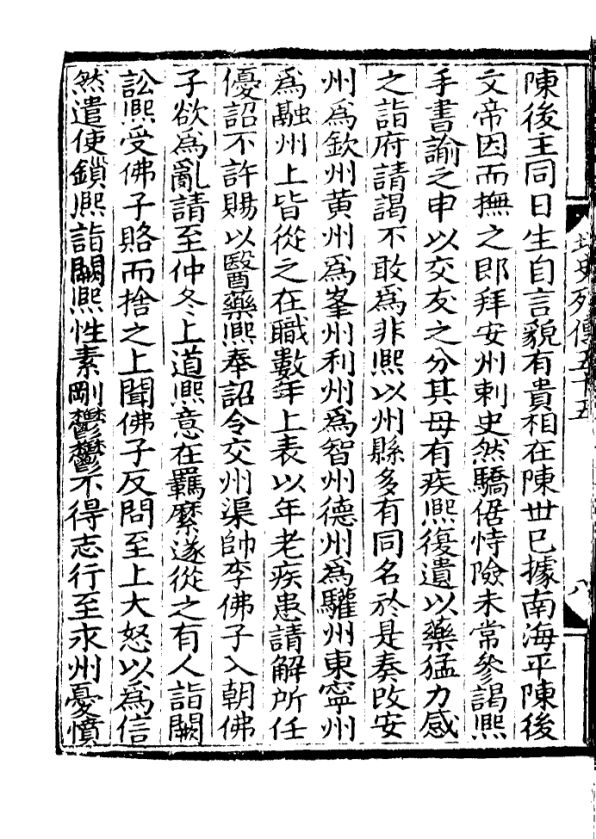 北史列傳五十五
八
陳後主同日生自言貌有貴相在陳世已據南海平陳後
文帝因而撫之即拜安州刺史然驕倨恃險未常參謁熙
手書諭之申以交友之分其母有疾熙復遺以藥猛力感
之詣府請謁不敢為非熙以州縣多有同名於是奏改安
州為欽州黃州為峯州利州為智州德州為驩州東寧州
為融州上皆從之在職數年上表以年老疾患請解所任
優詔不許賜以醫藥熙奉詔令交州渠帥李佛子入朝佛
子欲為亂請至仲冬上道熙意在羈縻遂從之有人詣闕
訟熙受佛子賂而捨之上聞佛子反問至上大怒以為信
然遣使鎖熙詣闕熙性素剛鬱鬱不得志行至永州憂憤